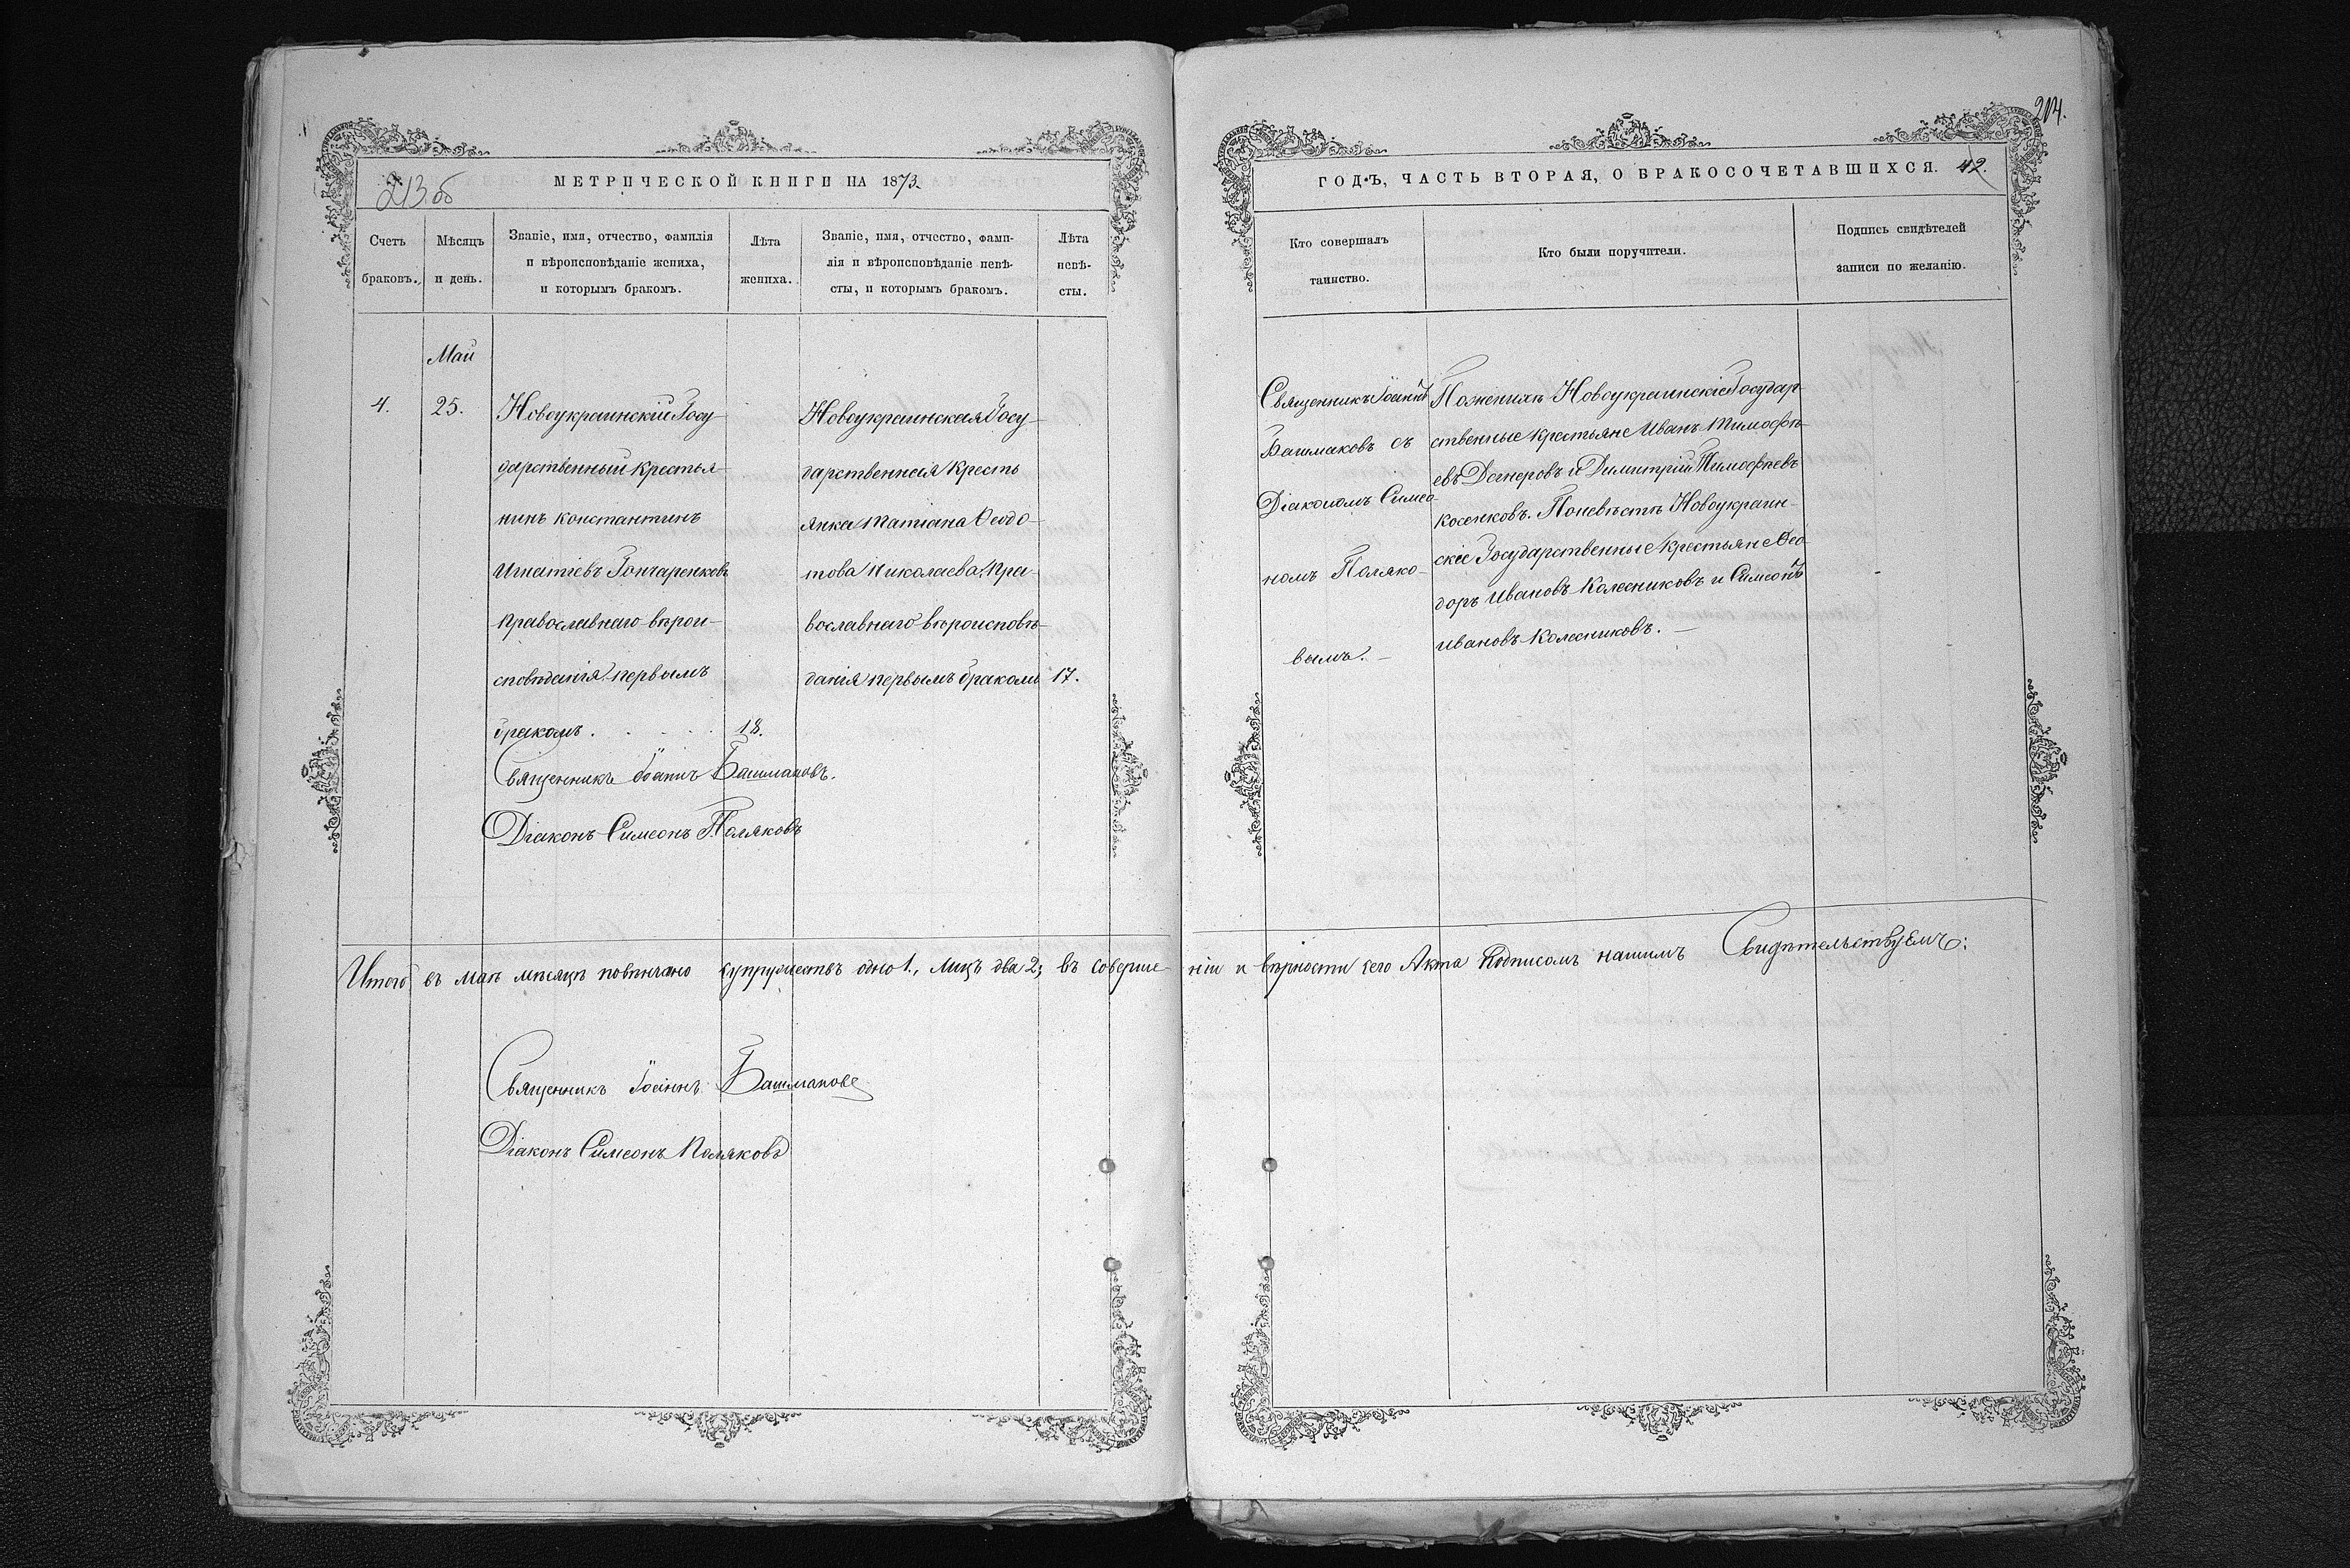 213об
МЕТРИЧЕСКОЙ КНИГИ НА 1873.
Счетъ
браковъ.
Мѣсяцъ
и день.
Званіе, имя, отчество, фамилія
и вѣроисповѣданіе жениха,
и которымъ бракомъ.
Лѣта
жениха.
Званіе, имя, отчество, фами-
лія и вѣроисповѣданіе невѣ-
сты, и которымъ бракомъ.
Лѣта
невѣ-
сты.
Май
4.
25.
Новоукраинскій Госу-
дарственный крестья-
нинъ Константинъ
Игнатіевъ Гончаренковъ
православнаго вѣрои-
сповѣданія первымъ
бракомъ . . . . .
18.
Новоукраинская Госу-
дарственная кресть
янка Татіана Ѳеодо-
това Николаева, пра-
вославнаго вѣроисповѣ-
данія первымъ бракомъ
17.
Священникъ Іоаннъ Башмаковъ.
Діаконъ Симеонъ Поляковъ
Итого въ маѣ мѣсяцѣ повѣнчано супружествъ одно 1., лицъ два 2; въ соверше-
Священникъ Іоаннъ Башмаковъ
Діаконъ Симеонъ Поляковъ
214.
ГОДЪ, ЧАСТЬ ВТОРАЯ, О БРАКОСОЧЕТАВШИХСЯ.
42.
Кто совершалъ
таинство.
Кто были поручители.
Подпись свидѣтелей
записи по желанію.
Священникъ Іоаннъ
Башмаковъ съ
Діакономъ Симео-
номъ Поляко-
вымъ. —
По женихѣ Новоукраинскіе Государ-
ственные крестьяне Иванъ Тимофѣ-
евъ Дегнеровъ и Димитрій Тимофѣевъ
Косенковъ. По невѣстѣ Новоукраин-
скіе Государственные крестьяне Ѳео
доръ Ивановъ Колесниковъ и Симеонъ
Ивановъ Колесниковъ. —
ніи и вѣрности сего Акта подписомъ нашимъ Свидѣтельствуемъ: